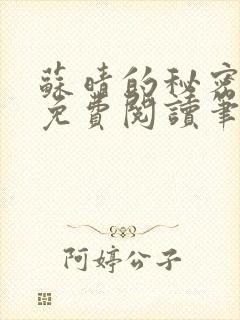 蘇晴的秘密
免費閱讀筆
阿婷公子